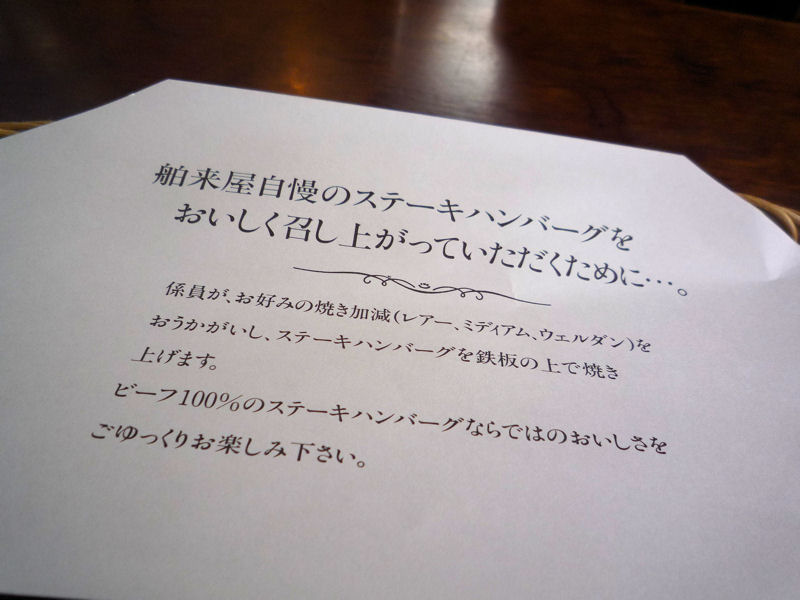 舶来屋自慢のステーキハンバーグを
おいしく召し上がっていただくために…。
係員が、お好みの焼き加減(レアー、ミディアム、ウェルダン)を
おうかがいし、ステーキハンバーグを鉄板の上で焼き
上げます。
ビーフ100%のステーキハンバーグならではのおいしさを
ごゆっくりお楽しみ下さい。